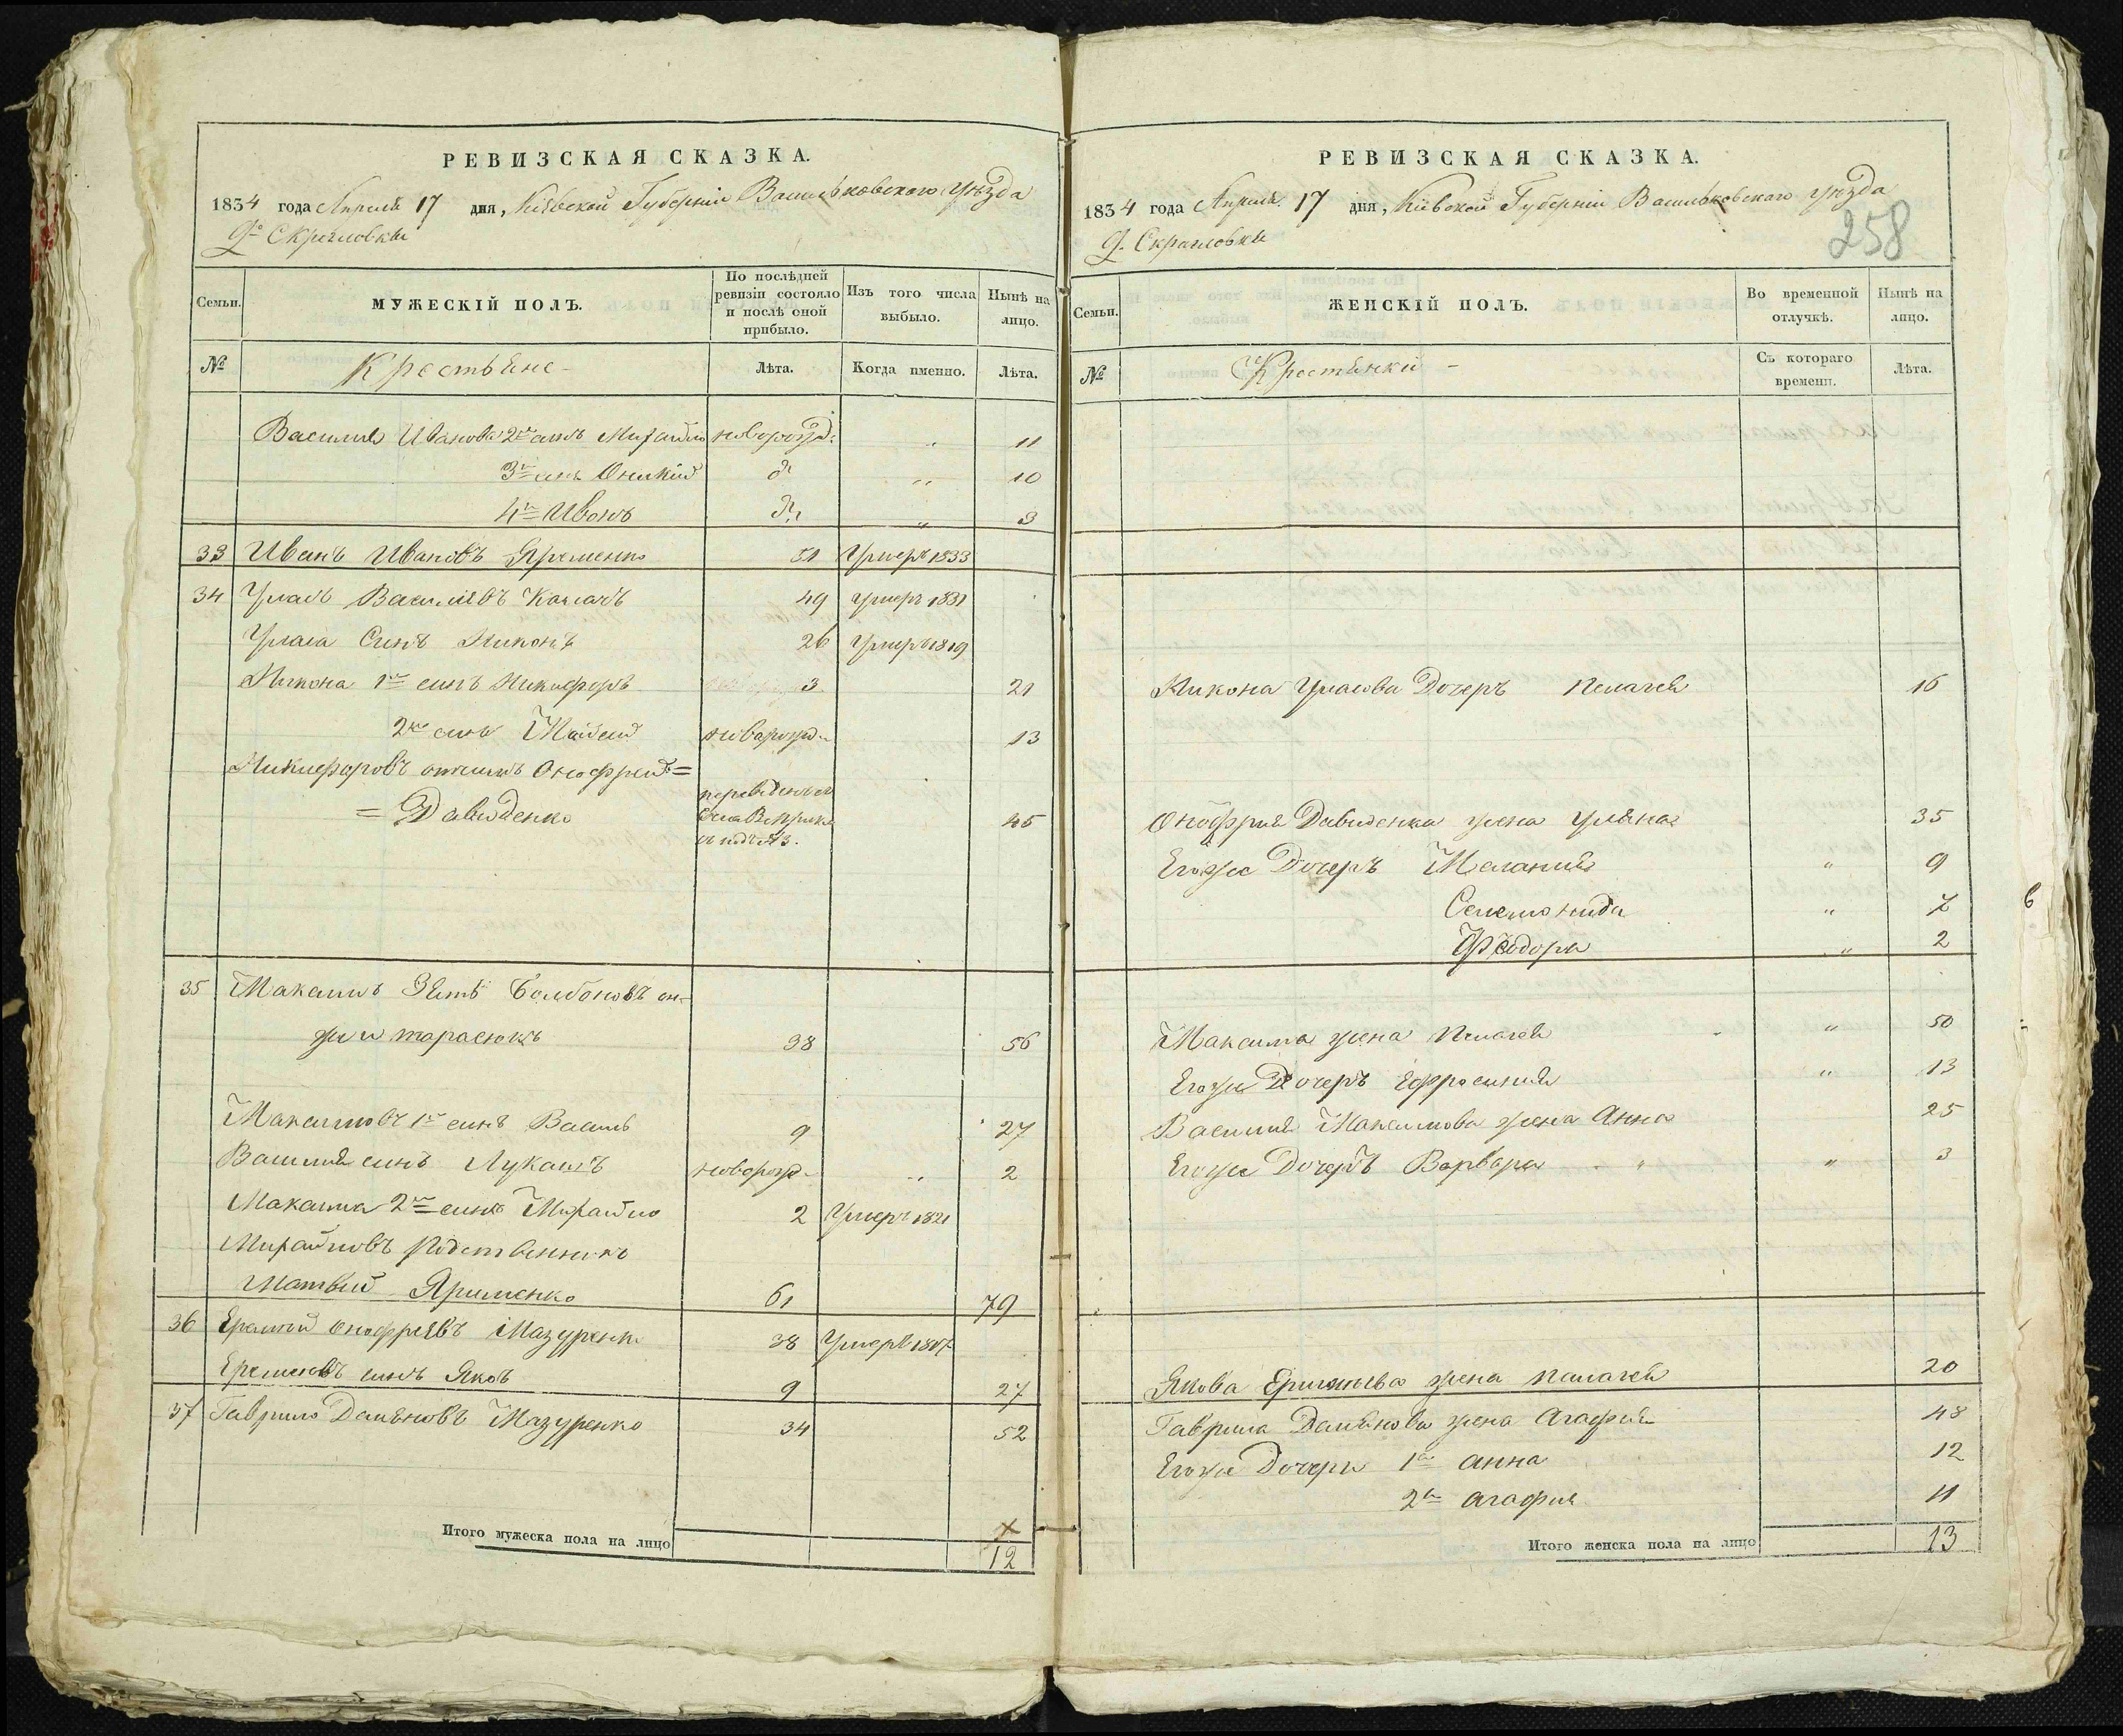 РЕВИЗСКАЯ СКАЗКА.
1834 года Апреля 17 дня, Кіевской Губерніи Васильковскаго уѣзда
Д. Скрыловки
Семьи. МУЖЕСКІЙ ПОЛЪ. По послѣдней ревизіи состояло и послѣ оной прибыло. Изъ того числа выбыло. Нынѣ на лицо.
№ Крестьяне Лѣта. Когда именно. Лѣта.
Василия Иванова 2й синъ Михайло новорожд: " 11
3й синъ д " 10
4й Иванъ д " 3
33 Иванъ Ивановъ Яременко 51 Умеръ 1833
34 Уласъ Василіевъ 49 умеръ 1831
Уласа Синъ Никонъ 26 Умеръ 1819
Никона 1й синъ Никифоръ 3 21
2й синъ новорожд 13
Никифоровъ отчимъ Онофрей=
=Давиденко 45
35 Максимъ Зять онъ
же и тарасюкъ 38 56
Максимовъ 1й синъ Василь 9 27
Василия синъ Лукашъ новорож " 2
Максима 2й синъ Михайло 2 Умеръ 1821
Михайловъ Родственникъ
Матвей Ярименко 61 79
36 Еремей Онофрієвъ Мазуренко 38 Умеръ
Еремеевъ синъ Яковъ 9 27
37 Гаврило Дамяновъ Мазуренко 34 52
Итого мужеска пола на лицо 12
РЕВИЗСКАЯ СКАЗКА.
258
1834 года Апреля 17 дня, Кіевской Губерніи Васильковскаго уѣзда
Д. Скрыловки
Семьи. ЖЕНСКІЙ ПОЛЪ. Во временной отлучкѣ. Нынѣ на лицо.
№ Крестянки Съ котораго времени. Лѣта.
Никона Уласова Дочеръ Пелагея 16
Онофрия Давиденка жена Уляна 35
Егоже Дочеръ Мелания " 9
" 7
Феодора " 2
Максима жена Пелагея " 50
Егоже Дочеръ Ефросиния " 13
Василия Максимова жена Анна 25
Егоже Дочеръ Варвара " 3
Якова жена Палагея 20
Гаврила Дамянова жена Агафия 48
Егоже Дочери 1я анна 12
2я агафия 11
Итого женска пола на лицо 13